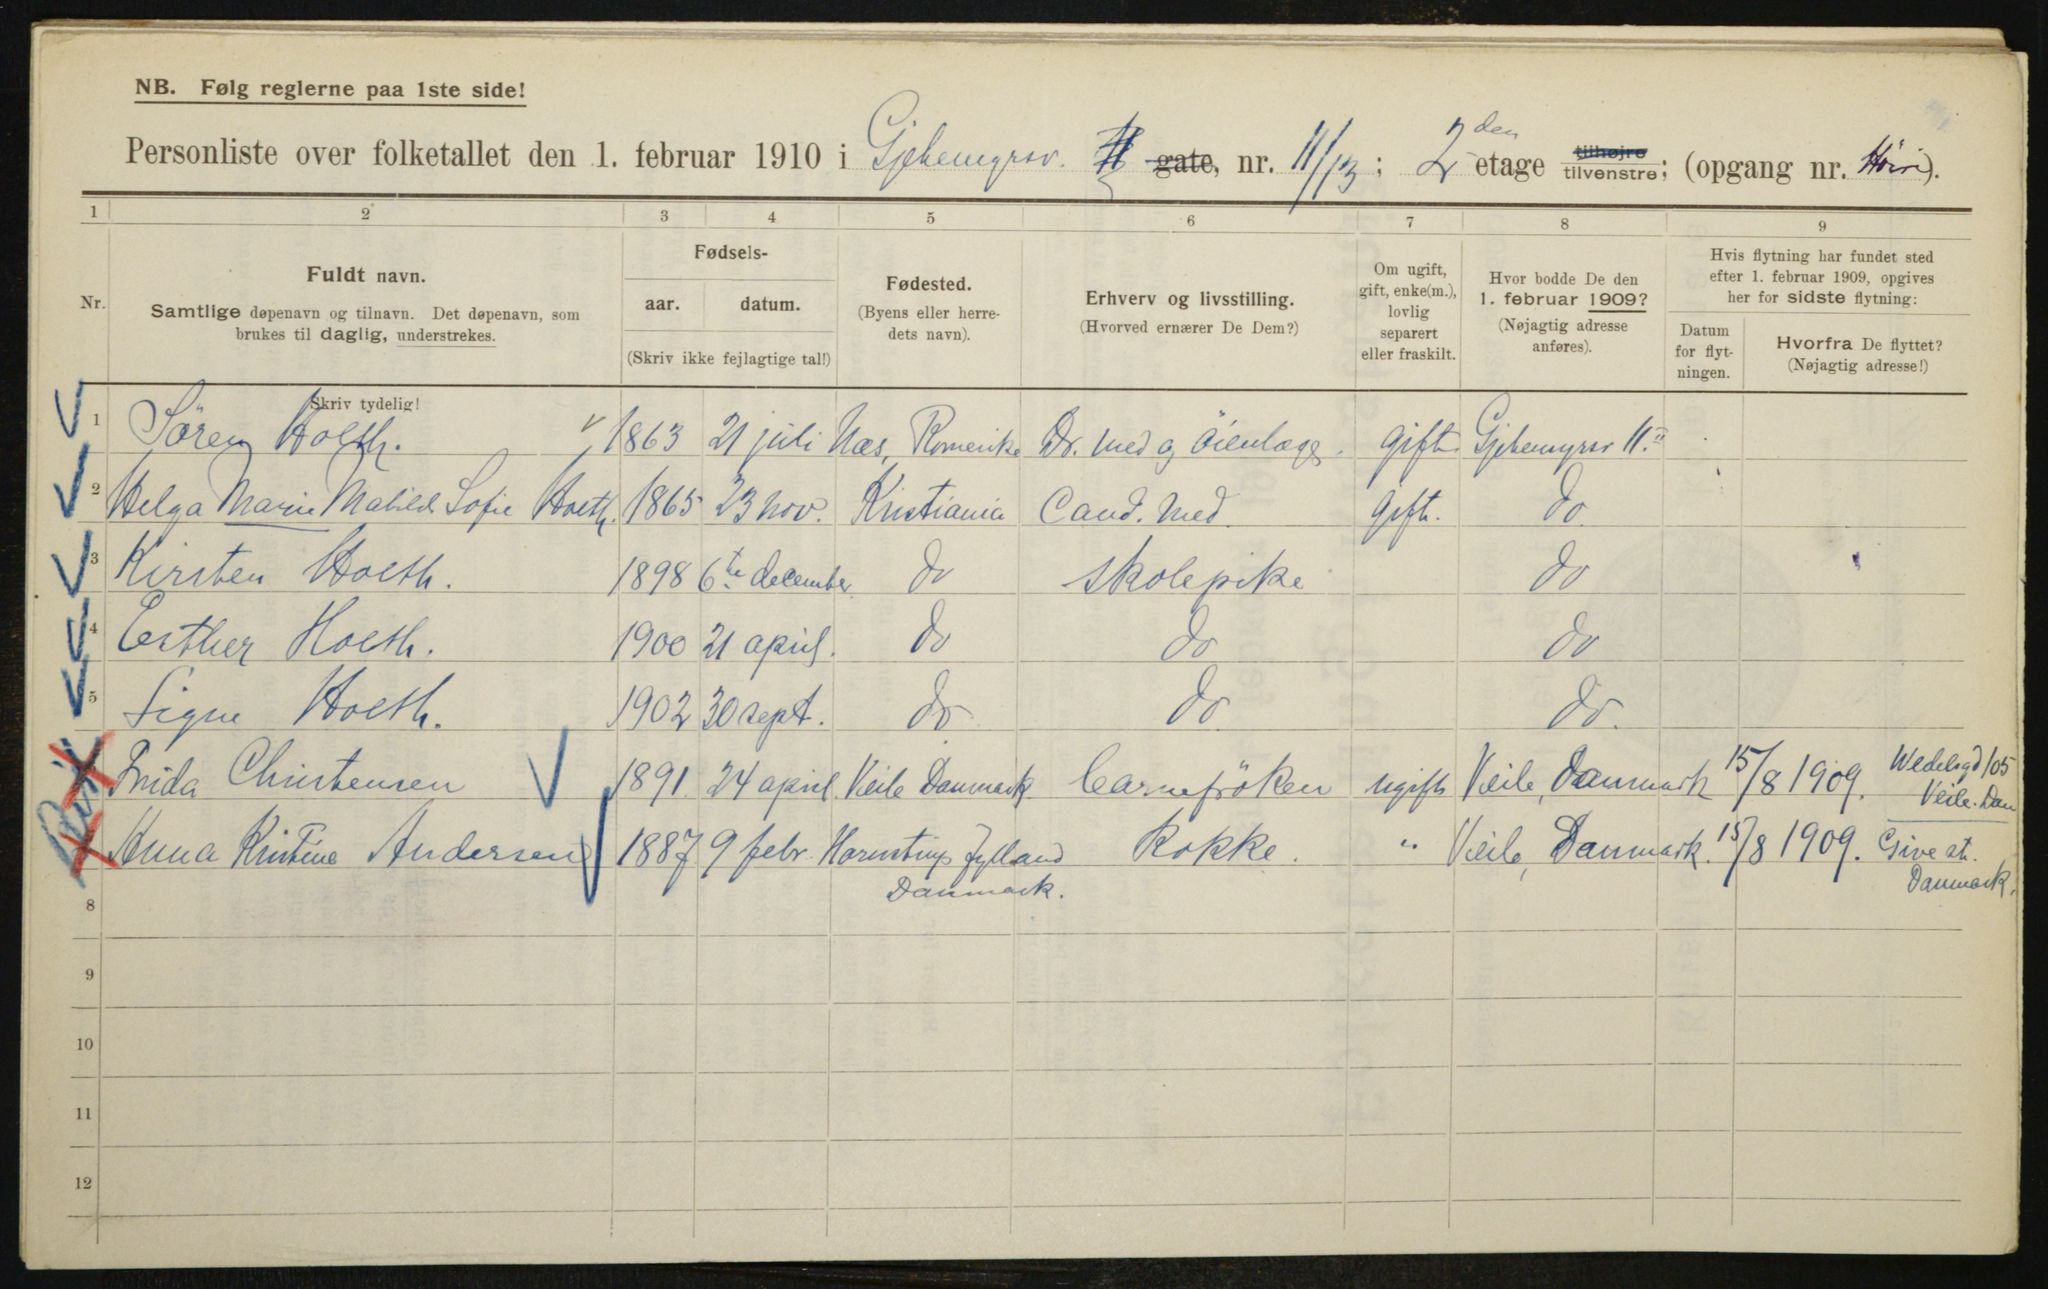 NB. Følg reglerne paa 1ste side!
Personliste over folketallet den 1. februar 1910 i Gjetemyrsv. gate, nr. 11/13; 2den etage tilhøjre tilvenstre; (opgang nr. ).
1 2 3 4 5 6 7 8 9
Nr.
Fuldt navn.
Samtlige døpenavn og tilnavn. Det døpenavn, som
brukes til daglig, understrekes.
Skriv tydelig!
Fødsels-
aar. datum.
(Skriv ikke fejlagtige tal!)
Fødested.
(Byens eller herre-
dets navn).
Erhverv og livsstilling.
(Hvorved ernærer De Dem?)
Om ugift,
gift, enke(m.),
lovlig
separert
eller fraskilt.
Hvor bodde De den
1. februar 1909?
(Nøjagtig adresse
anføres).
Hvis flytning har fundet sted
efter 1. februar 1909, opgives
her for sidste flytning:
Datum
for flyt-
ningen.
Hvorfra De flyttet?
(Nøjagtig adresse!)
1 Sören Holth. 1863 21 juli Næs, Romerike Dr. med og öienlæge. gift Gjetemyrsv 11.II
2 Helga Marie Matilde Sofie Holth. 1865 23 nov. Kristiania Cand. med. gift. do.
3 Kirsten Holth. 1898 6te december do skolepike do
4 Esther Holth. 1900 21 april. do do do
5 Signe Holth. 1902 30 sept. do do do.
Frida Christensen 1891. 24 april. Veile Danmark barnefröken ugift Veile, Danmark 15/8 1909. Wedelsgd 105
Veile. Dan
Anna Kristine Andersen 1887 9 febr. Jylland Kokke. " Veile, Danmark. 15/8 1909. Give st.
Danmark. Danmark.
8
9
10
11
12